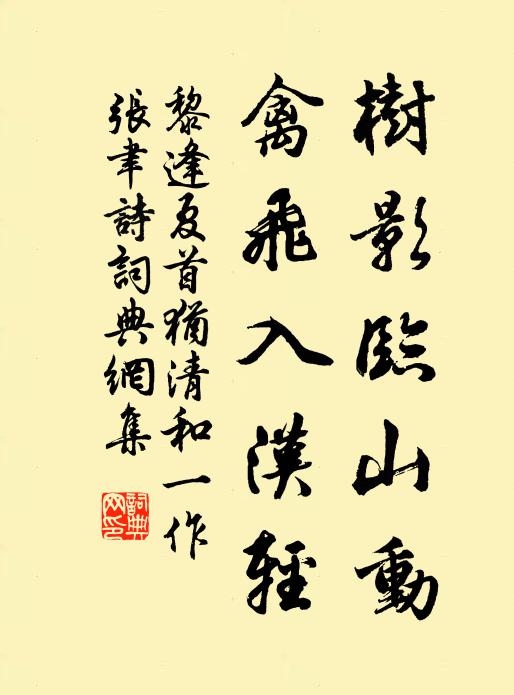 樹影臨山動
禽飛入漢輕
黎逢夏首猶清和一作
張聿詩詞典網集
詞典
网印